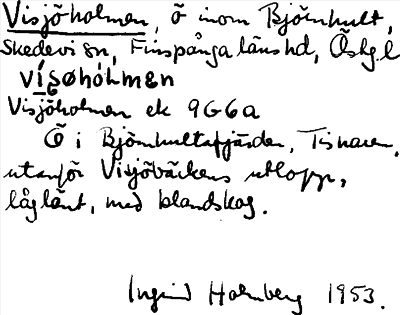 Visjöholmen, ö inom Björnhult,
Skedevi sn, Finspånga läns hd, Östg.l
visøhólmen
Visjöholmen ek 9G6a
Ö i Björnhultsfjärden, Tisnaren,
utanför Visjöbäckens utlopp,
låglänt, med blandskog.
Ingrid Holmberg 1953.